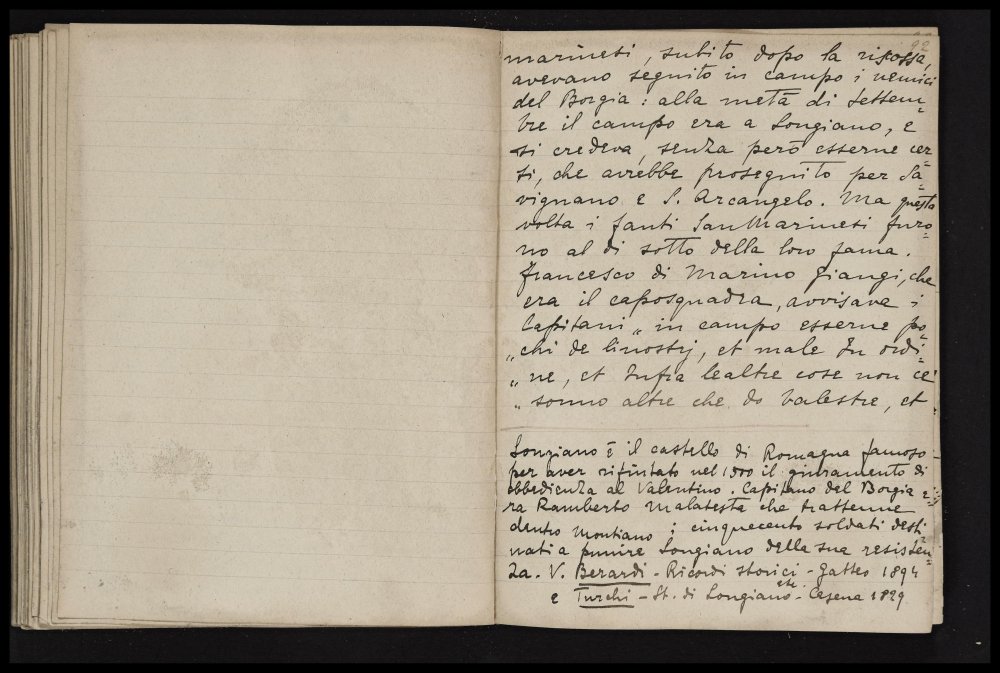 92
marinesi, subito dopo la riscossa,
avevano seguito in campo i nemici
del Borgia: alla metà di settem=
bre il campo era a Longiano, e
si credeva, senza però esserne cer=
ti, che avrebbe proseguito per Sa=
vignano e S. Arcangelo. Ma questa
volta i fanti San Marinesi furo=
no al di sotto della loro fama.
Francesco di Marino Giangi, che
era il caposquadra, avvisava i
Capitani „ in campo esserne po=
„ chi de linostrj, et male In ordi=
„ ne, et Infra lealtre cose non ce
„ sonno altre che do balestre, et
Longiano è il castello di Romagna famoso
per aver rifiutato nel 1500 il giuramento di
obbedienza al Valentino. Capitano del Borgia e=
ra Ramberto Malatesta che trattenne
dentro Montiano i cinquecento soldati desti=
nati a punire Longiano della sua resisten=
za. V. Berardi - Ricordi storici - Gatteo 1894
e Turchi - St. di Longiano etc. - Cesena 1829